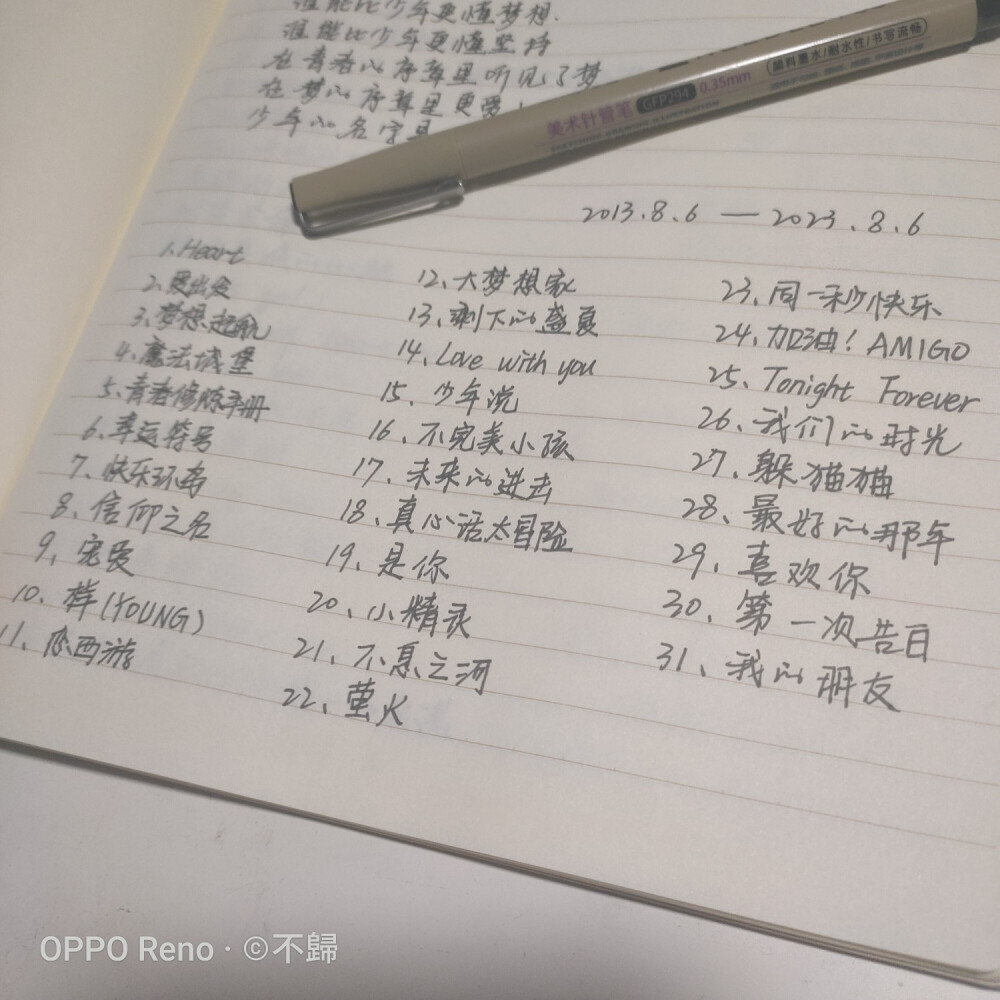 谁能比少年更懂梦想.
谁能比少年更懂坚持
在青春的序章里听见了梦
在梦的序章里更要
少年的名字是
颜料墨水/耐水性/书写流畅
美术针管笔 GFP294 0.35mm
2013.8.6 — 2023.8.6
1、Heart
2、爱出发
3、梦想起航
4、魔法城堡
5、青春修炼手册
6、幸运符号
7、快乐环岛
8、信仰之名
9、宠爱
10、样(YOUNG)
11、恋西游
12、大梦想家
13、剩下的盛夏
14、Love with you
15、少年说
16、不完美小孩
17、未来的进击
18、真心话太冒险
19、是你
20、小精灵
21、不息之河
22、萤火
23、同一秒快乐
24、加油！AMIGO
25、Tonight Forever
26、我们的时光
27、躲猫猫
28、最好的那年
29、喜欢你
30、第一次告白
31、我的朋友
OPPO Reno · ©不歸